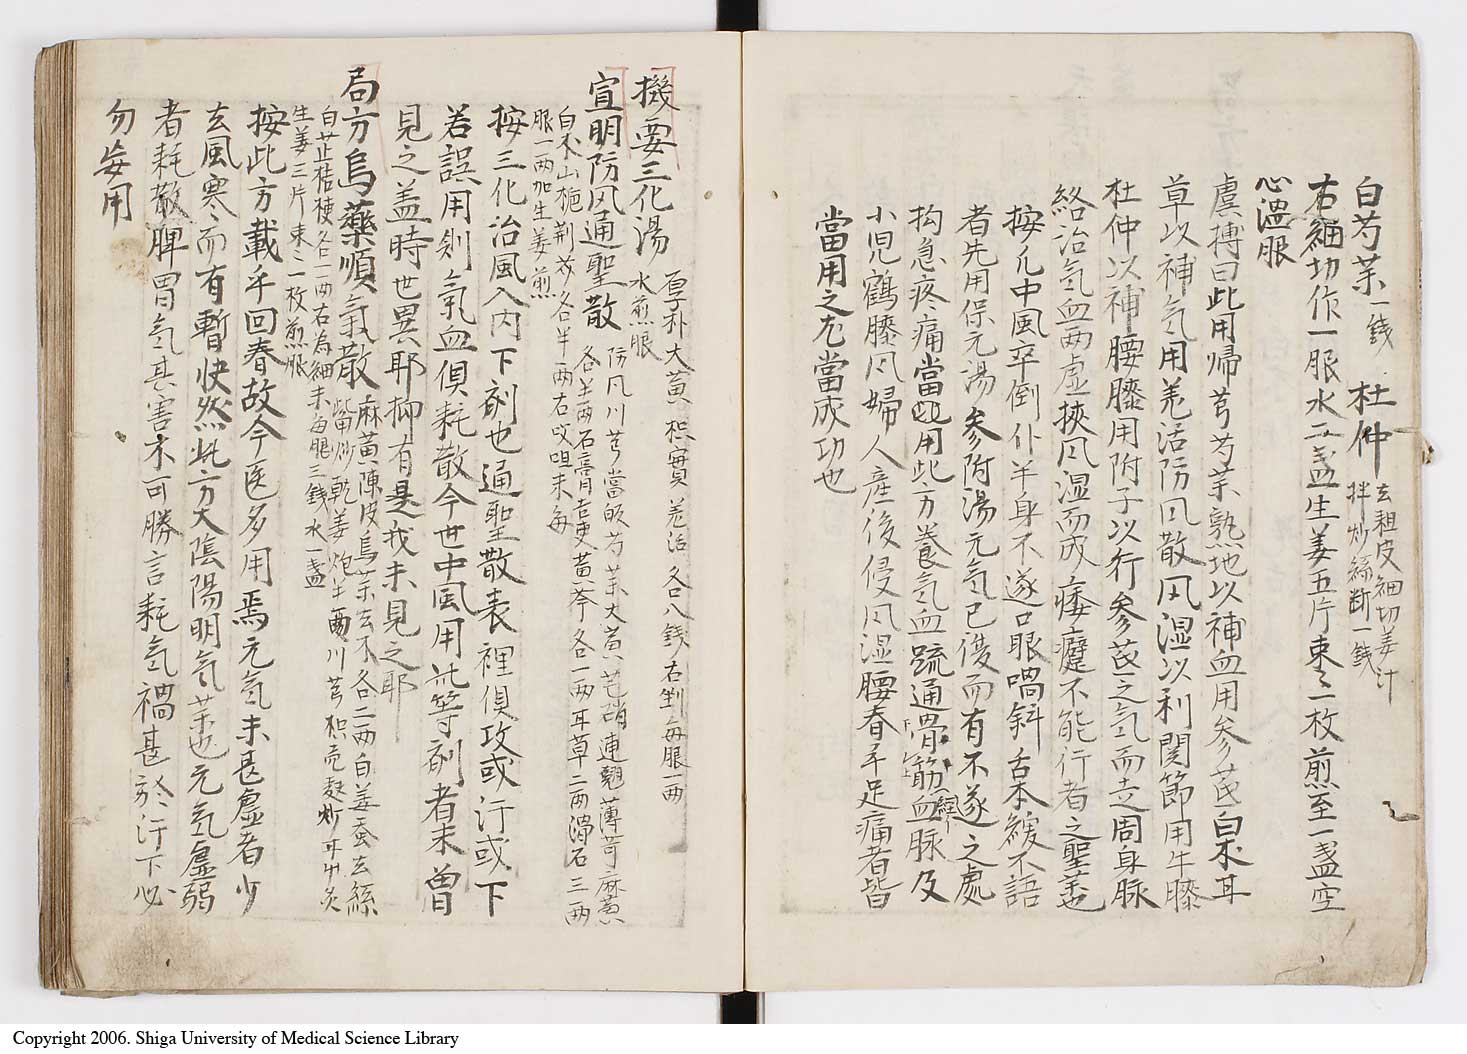 白芍茱一錢　杜仲去粗皮細切姜汁
拌炒絲断一錢
右細切作一服水二盞生姜五片束ミ一枚煎至一盞空
心温服
虞摶曰此用帰芎芍茱熟地以補血用参芪白朮耳
草以補氣用羌活防風散風湿以利関節用牛膝
杜仲以補腰膝用附子以行参芪之氣而走周身脉
絡治氣血両虚挾風湿而成痿躄不能行者之聖善
按凡中風卒倒仆半身不遂口眼喎斜舌本緩不語
者先用保元湯参附湯元氣已復而有不遂之處
拘急疼痛當用此方養氣血疏通骨筋血脉及
小児鶴膝風婦人産後侵風湿腰脊手足痛者皆
當用之尤當成功也
機要三化湯　厚朴大黄枳實羌活各八錢右剉毎服一両
水煎服
宣明防風通聖散　防風川芎當皈芍茱大黄芒硝連翹薄苛麻黄
各半両石膏吉更黄芩各一両耳草二両滑石三両
白朮山梔荊芥各半両右㕮咀末毎
服一両加生姜煎
按三化治風入内下剤也通聖散表裡俱攻或汗或下
若誤用則氣血俱耗散今世中風用此等剤者未曽
見之盖時世異耶抑有是我未見之耶
局方烏藥順氣散　麻黄陳皮烏茱去木各二両白姜蚕去絲
觜炒乾姜炮半両川芎枳壳麩炒耳屮灸
白芷桔梗各一両右為細末毎服三錢水一盞
生姜三片束ミ一枚煎服
按此方載乎回春故今医多用焉元氣未甚虚者少
玄風寒而有暫快然此方大陰陽明氣茱也元氣虚弱
者耗散脾胃氣其害不可勝言耗氣禍甚於汗下必
勿妄用